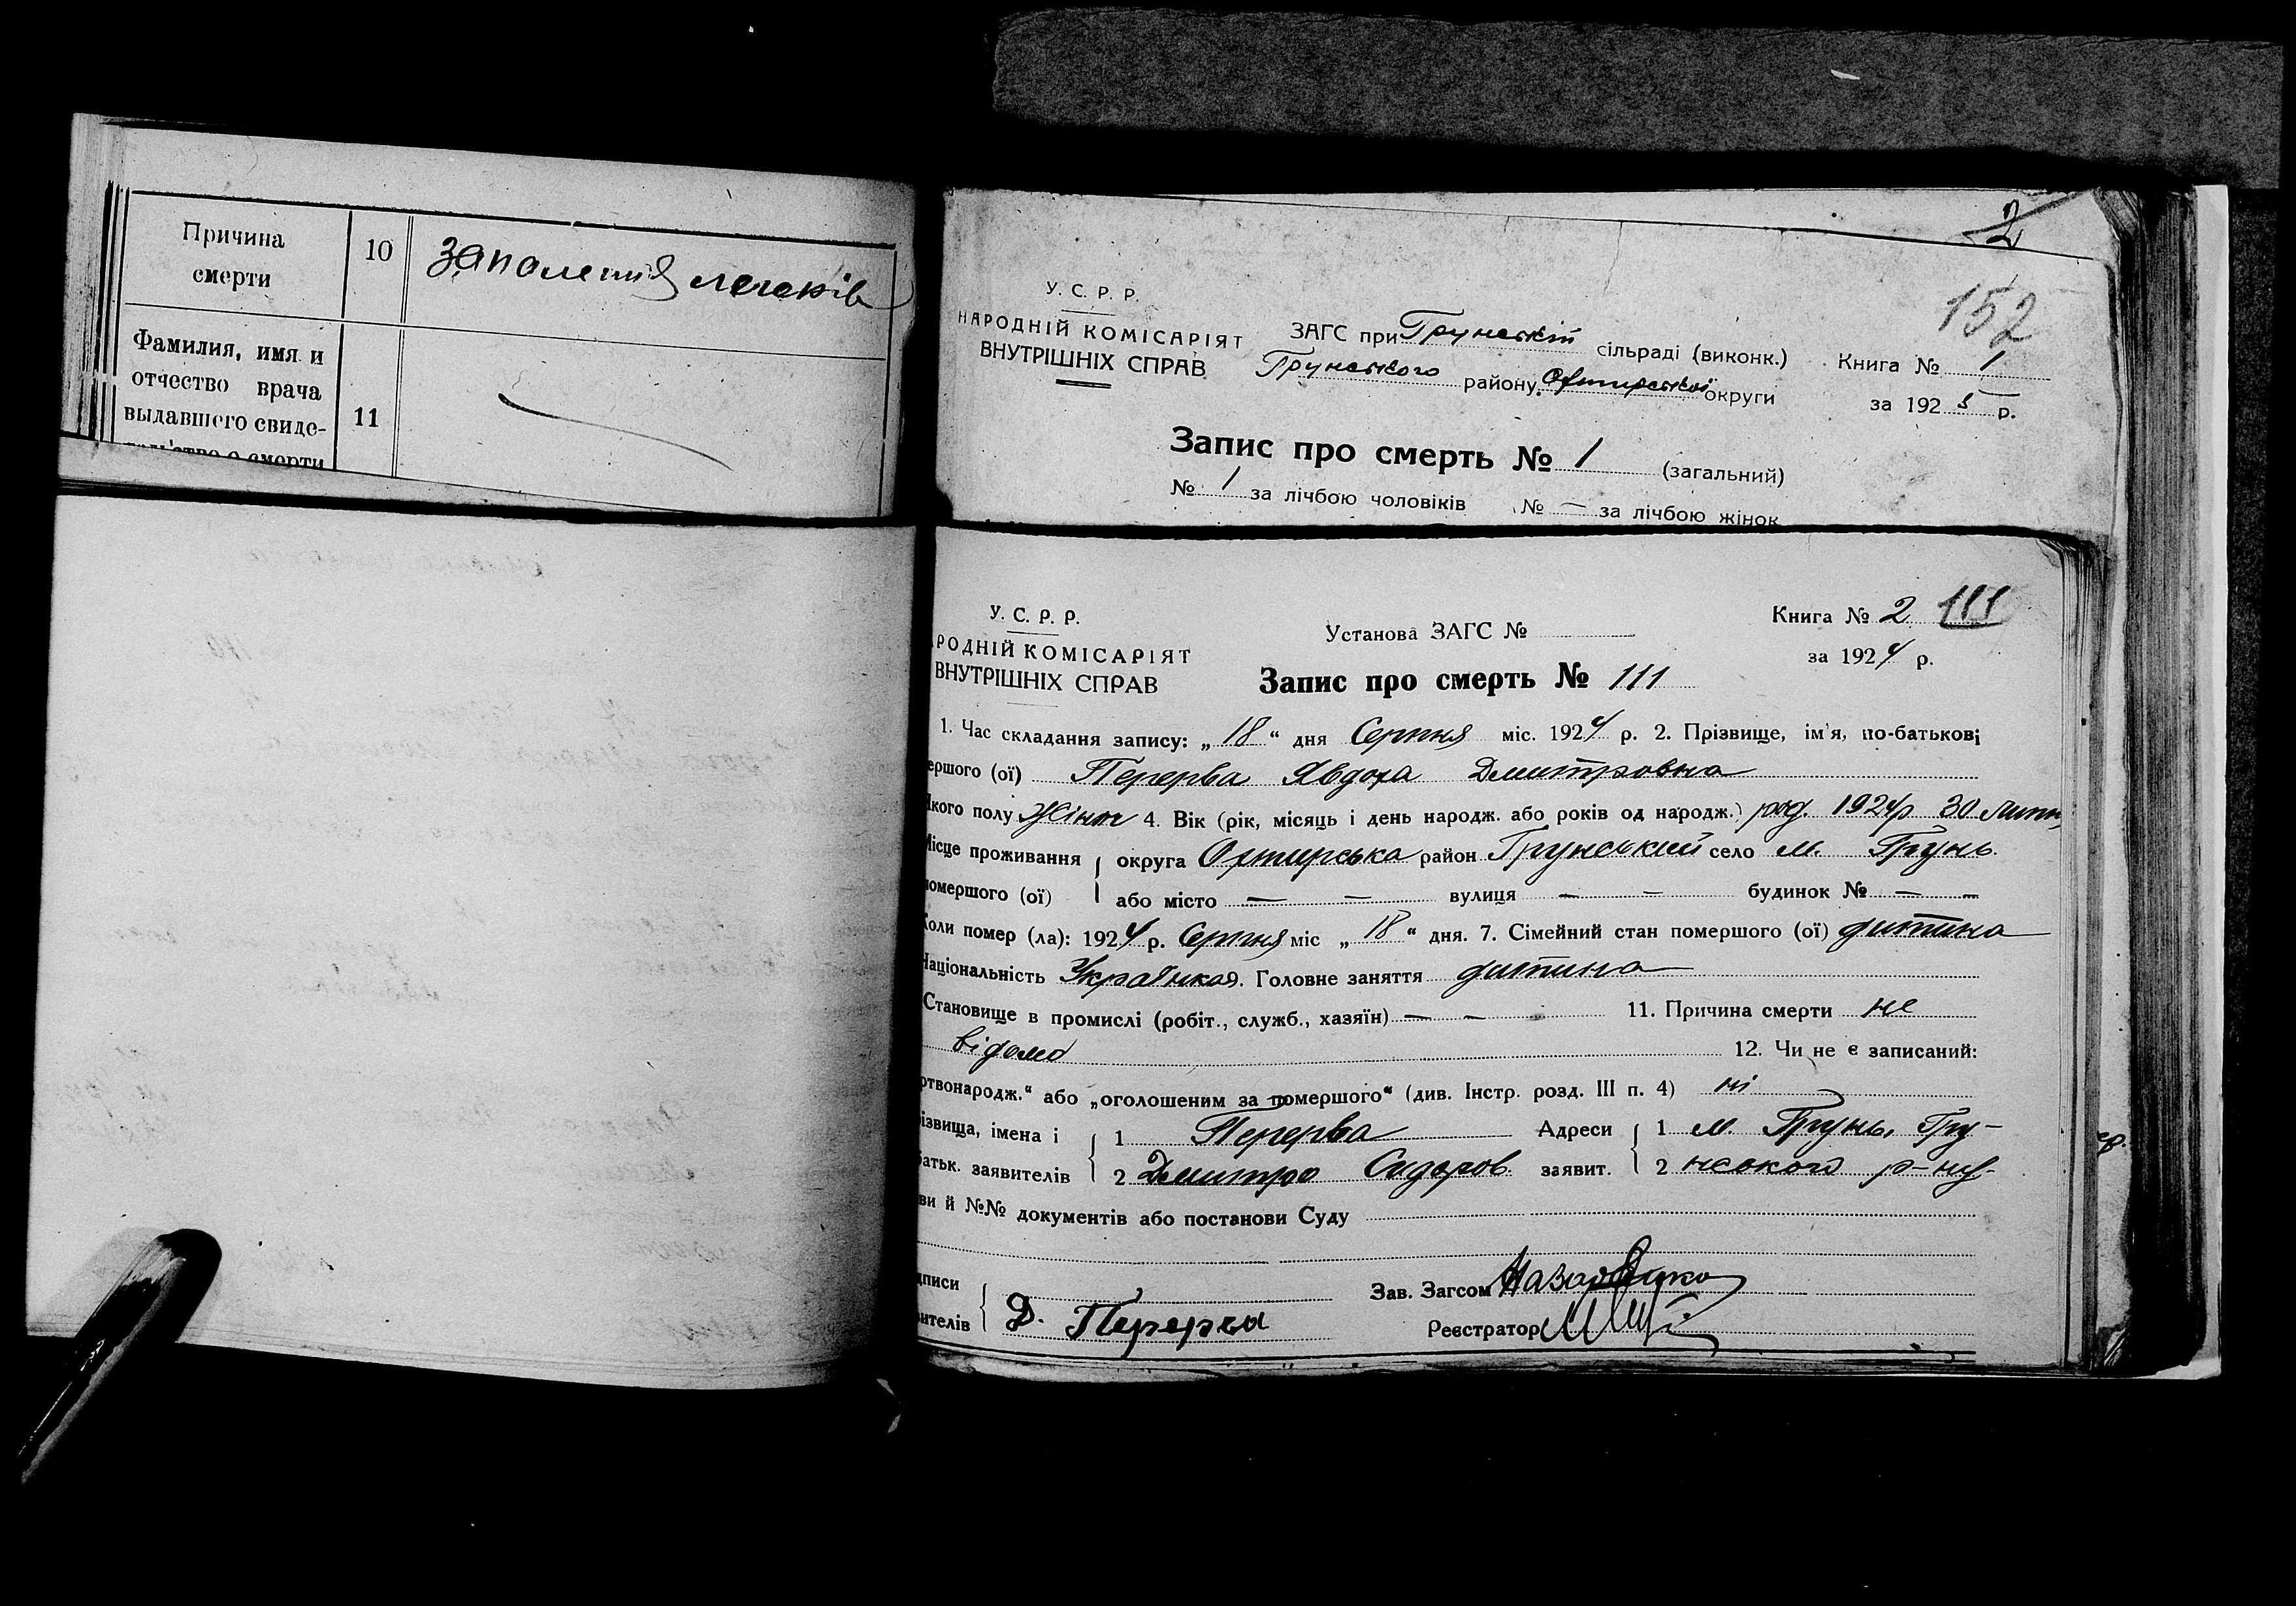 Причина смерти 10 запаления легеків
Фамилия, имя и
отчество врача
выдавшего свиде- 11
тельство о смерти
2
152
У. С. Р. Р.
НАРОДНІЙ КОМІСАРІЯТ
ВНУТРІШНІХ СПРАВ
ЗАГС при Грунській сільраді (виконк.) Книга № 1
Грунського району Охтирської округи за 1925 р.
Запис про смерть № 1 (загальний)
№ 1 за лічбою чоловіків № — за лічбою жінок
У. С. Р. Р.
РОДНІЙ КОМІСАРІЯТ
ВНУТРІШНІХ СПРАВ
Установа ЗАГС №
Книга № 2 111
за 1924 р.
Запис про смерть № 111
1. Час складання запису: „ 18 “ дня Серпня міс. 1924 р. 2. Прізвище, ім'я, по-батькові
ершого (ої) Перерва Явдоха Дмитровна
якого полу Жіноч 4. Вік (рік, місяць і день народж. або років од народж.) род. 1924р 30 Липн
Місце проживання округа Охтирська район Грунський село м. Грунь
помершого (ої) або місто — — вулиця — — будинок № — —
Коли помер (ла): 1924 р. Серпня міс „ 18 “ дня. 7. Сімейний стан помершого (ої) дитина
Національність Українка 9. Головне заняття дитина
Становище в промислі (робіт., служб., хазяїн) — — 11. Причина смерти не
відомо 12. Чи не є записаний:
ртвонародж.“ або „оголошеним за помершого“ (див. Інстр. розд. III п. 4) ні
ізвища, імена і 1 Перерва Адреси 1 м. Грунь, Гру-
батьк. заявителів 2 Дмитро Сидоров. заявит. 2 нського р-ну
ви й №№ документів або постанови Суду
дписи Зав. Загсом
вителів Д. Перерва Реєстратор